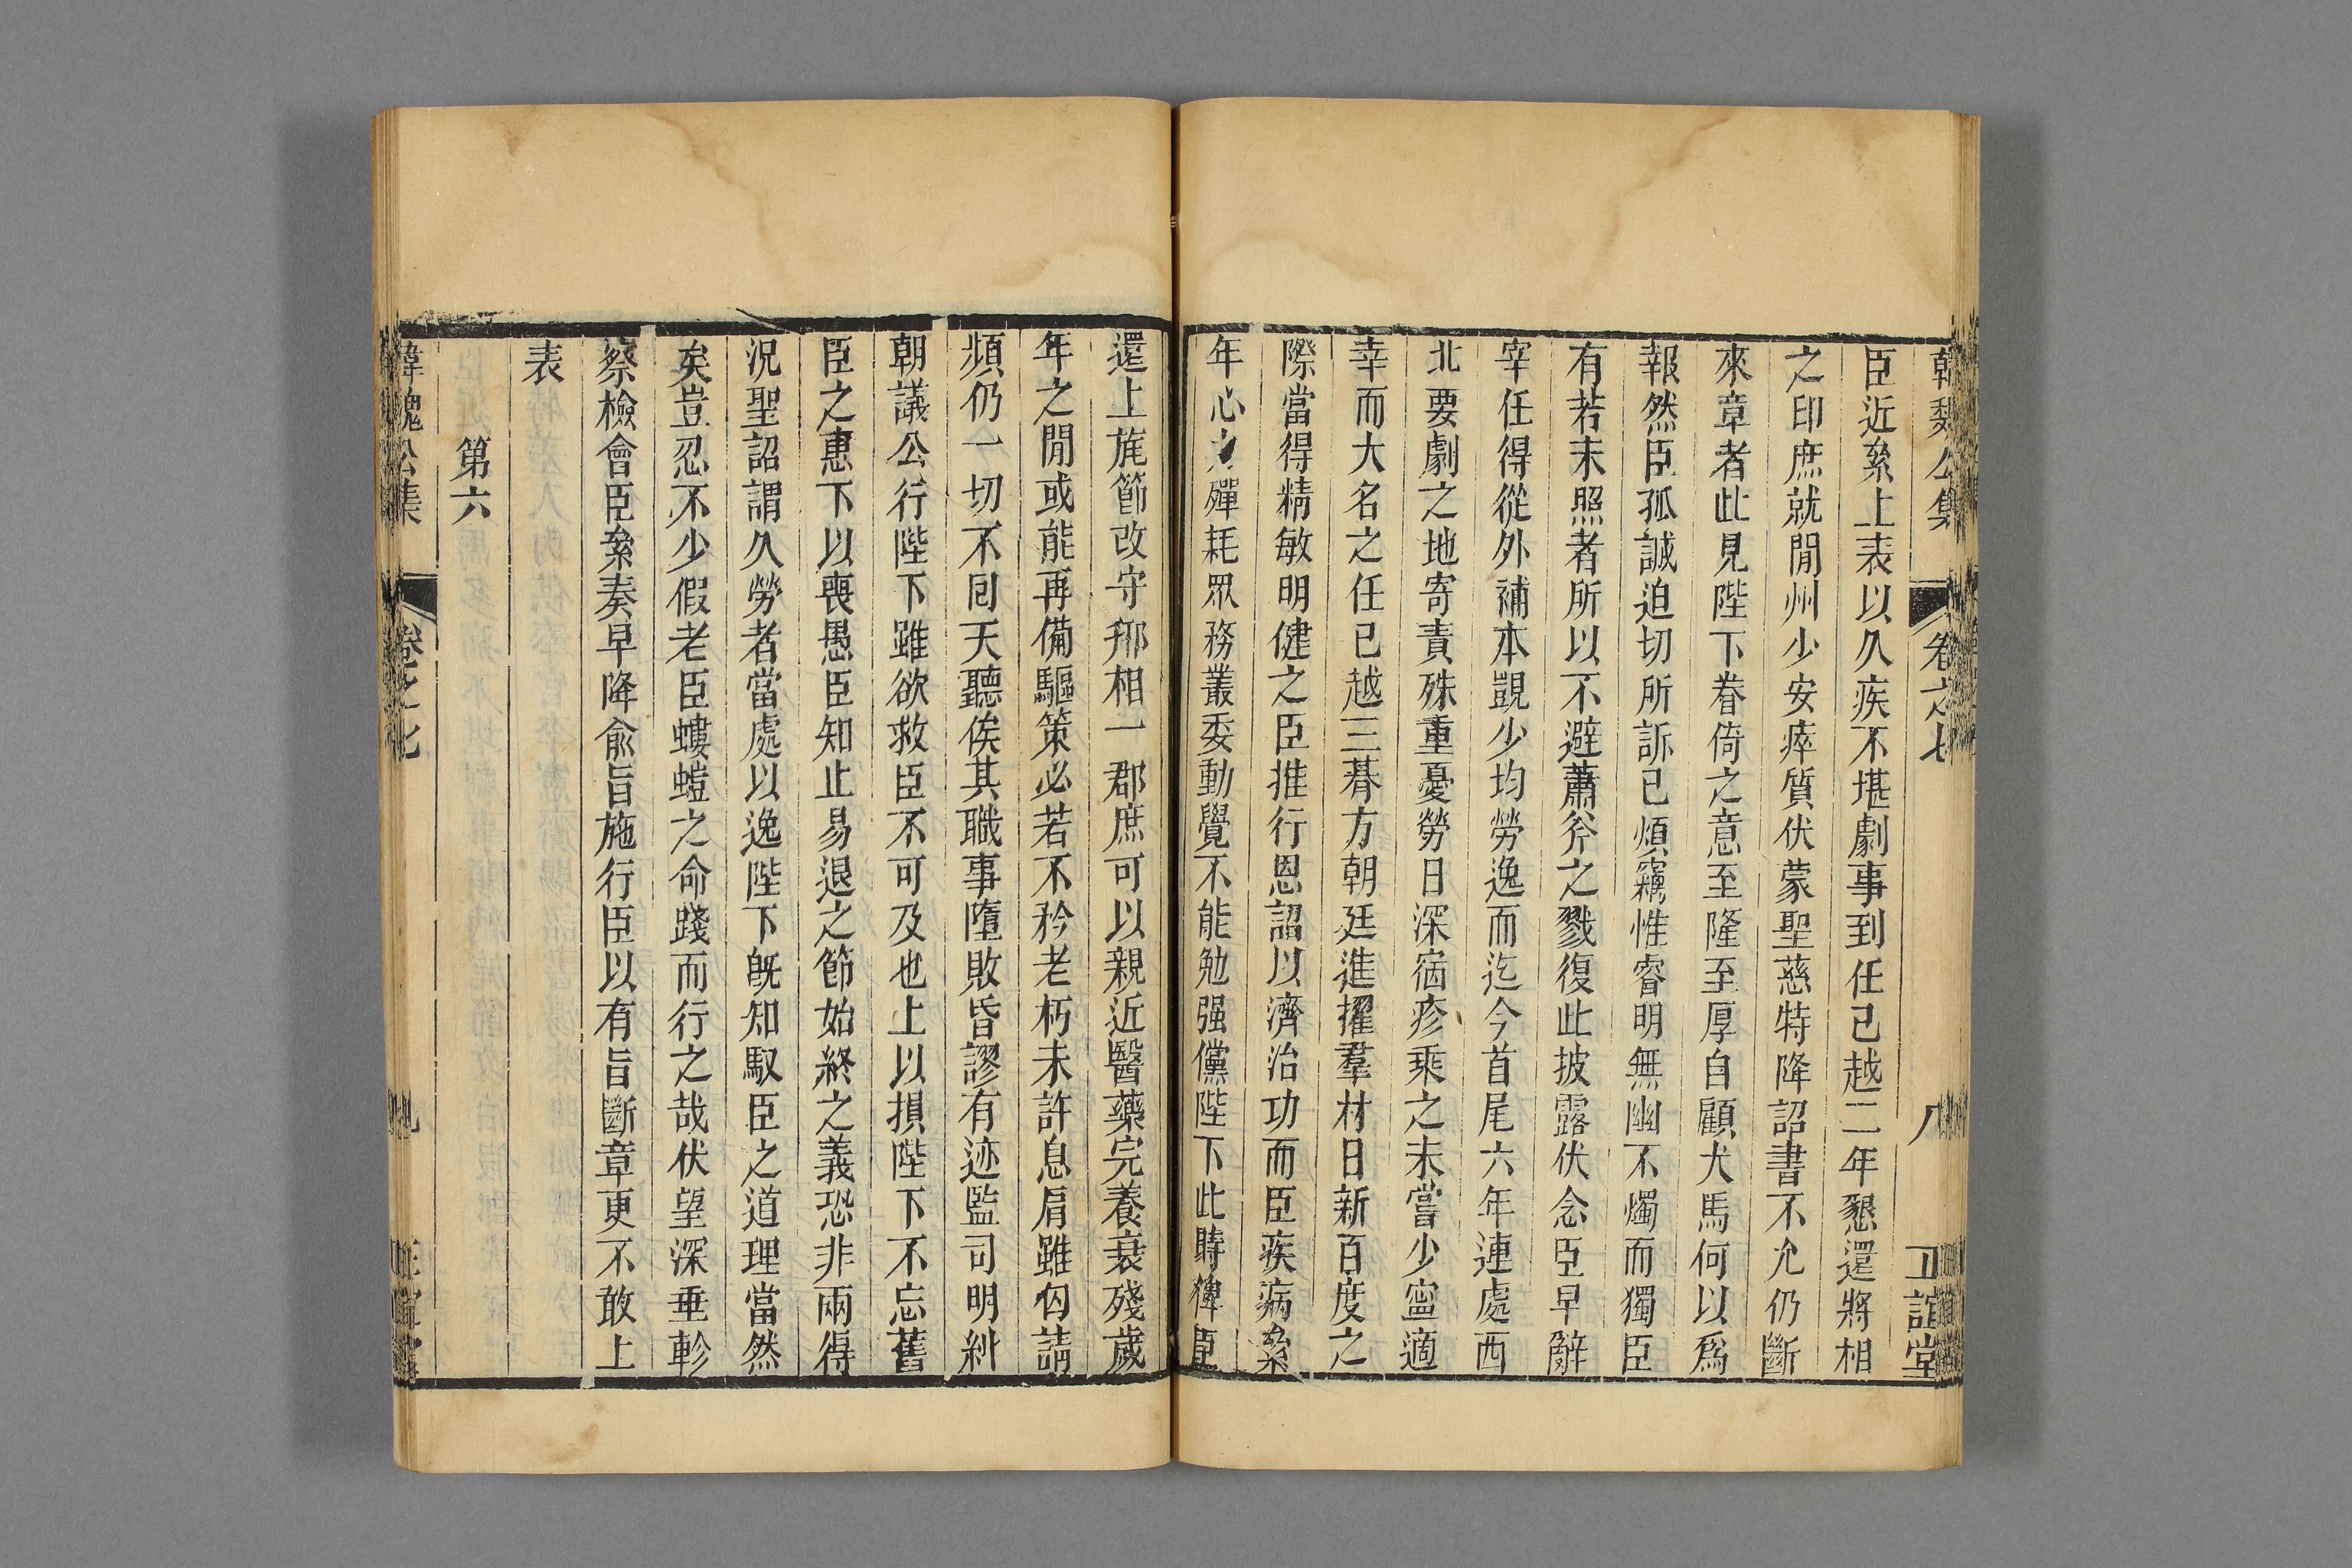 韓魏公集 卷之七 八 正誼堂
臣近絫上表以久疾不堪劇事到任已越二年懇還將相
之印庶就閒州少安瘁質伏蒙聖慈特降詔書不允仍斷
來章者此見陛下眷倚之意至隆至厚自顧犬馬何以爲
報然臣孤誠迫切所訴已煩竊惟睿明無幽不燭而獨臣
有若未照者所以不避蕭斧之戮復此披露伏念臣早辭
宰任得從外補本覬少均勞逸而迄今首尾六年連處西
北要劇之地寄責殊重憂勞日深宿疹乘之未嘗少寧適
幸而大名之任已越三朞方朝廷進擢羣材日新百度之
際當得精敏明健之臣推行恩詔以濟治功而臣疾病絫
年心力殫耗眾務叢委動覺不能勉强儻陛下此時俾臣
還上旄節改守邢相一郡庶可以親近醫藥完養衰殘歲
年之閒或能再備驅策必若不矜老朽未許息肩雖匃請
頻仍一切不囘天聽俟其職事墮敗昏謬有迹監司明糾
朝議公行陛下雖欲救臣不可及也上以損陛下不忘舊
臣之惠下以喪愚臣知止易退之節始終之義恐非兩得
況聖詔謂久勞者當處以逸陛下旣知馭臣之道理當然
矣豈忍不少假老臣螻螘之命踐而行之哉伏望深垂軫
察檢會臣絫奏早降兪旨施行臣以有旨斷章更不敢上
表
第六
韓魏公集 卷之七 九 正誼堂